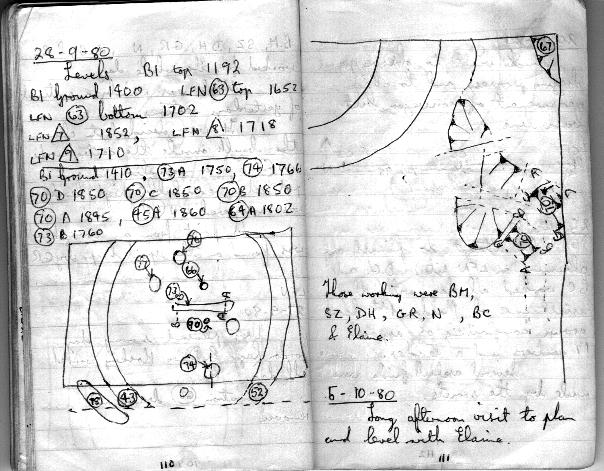 28-9-80
Levels BI top 1192
BI ground 1400 LFN 63 top 1652
LFN 63 bottom 1702
LFN 7 1852, LFN 8 1718
LFN 9 1710.
BI ground 1410, 73A 1750, 74 1766
70 D 1850 70 C 1850 70 B 1850
70 A 1845, 45A 1860 64A 1802
73 B 1760
76
77
66
73
70
74
78
43
52
110
67
A
A
Those working were BM,
SZ, DH, GR, N, BC
& Elaine.
5-10-80
Long afternoon visit to plan
and level with Elaine.
111